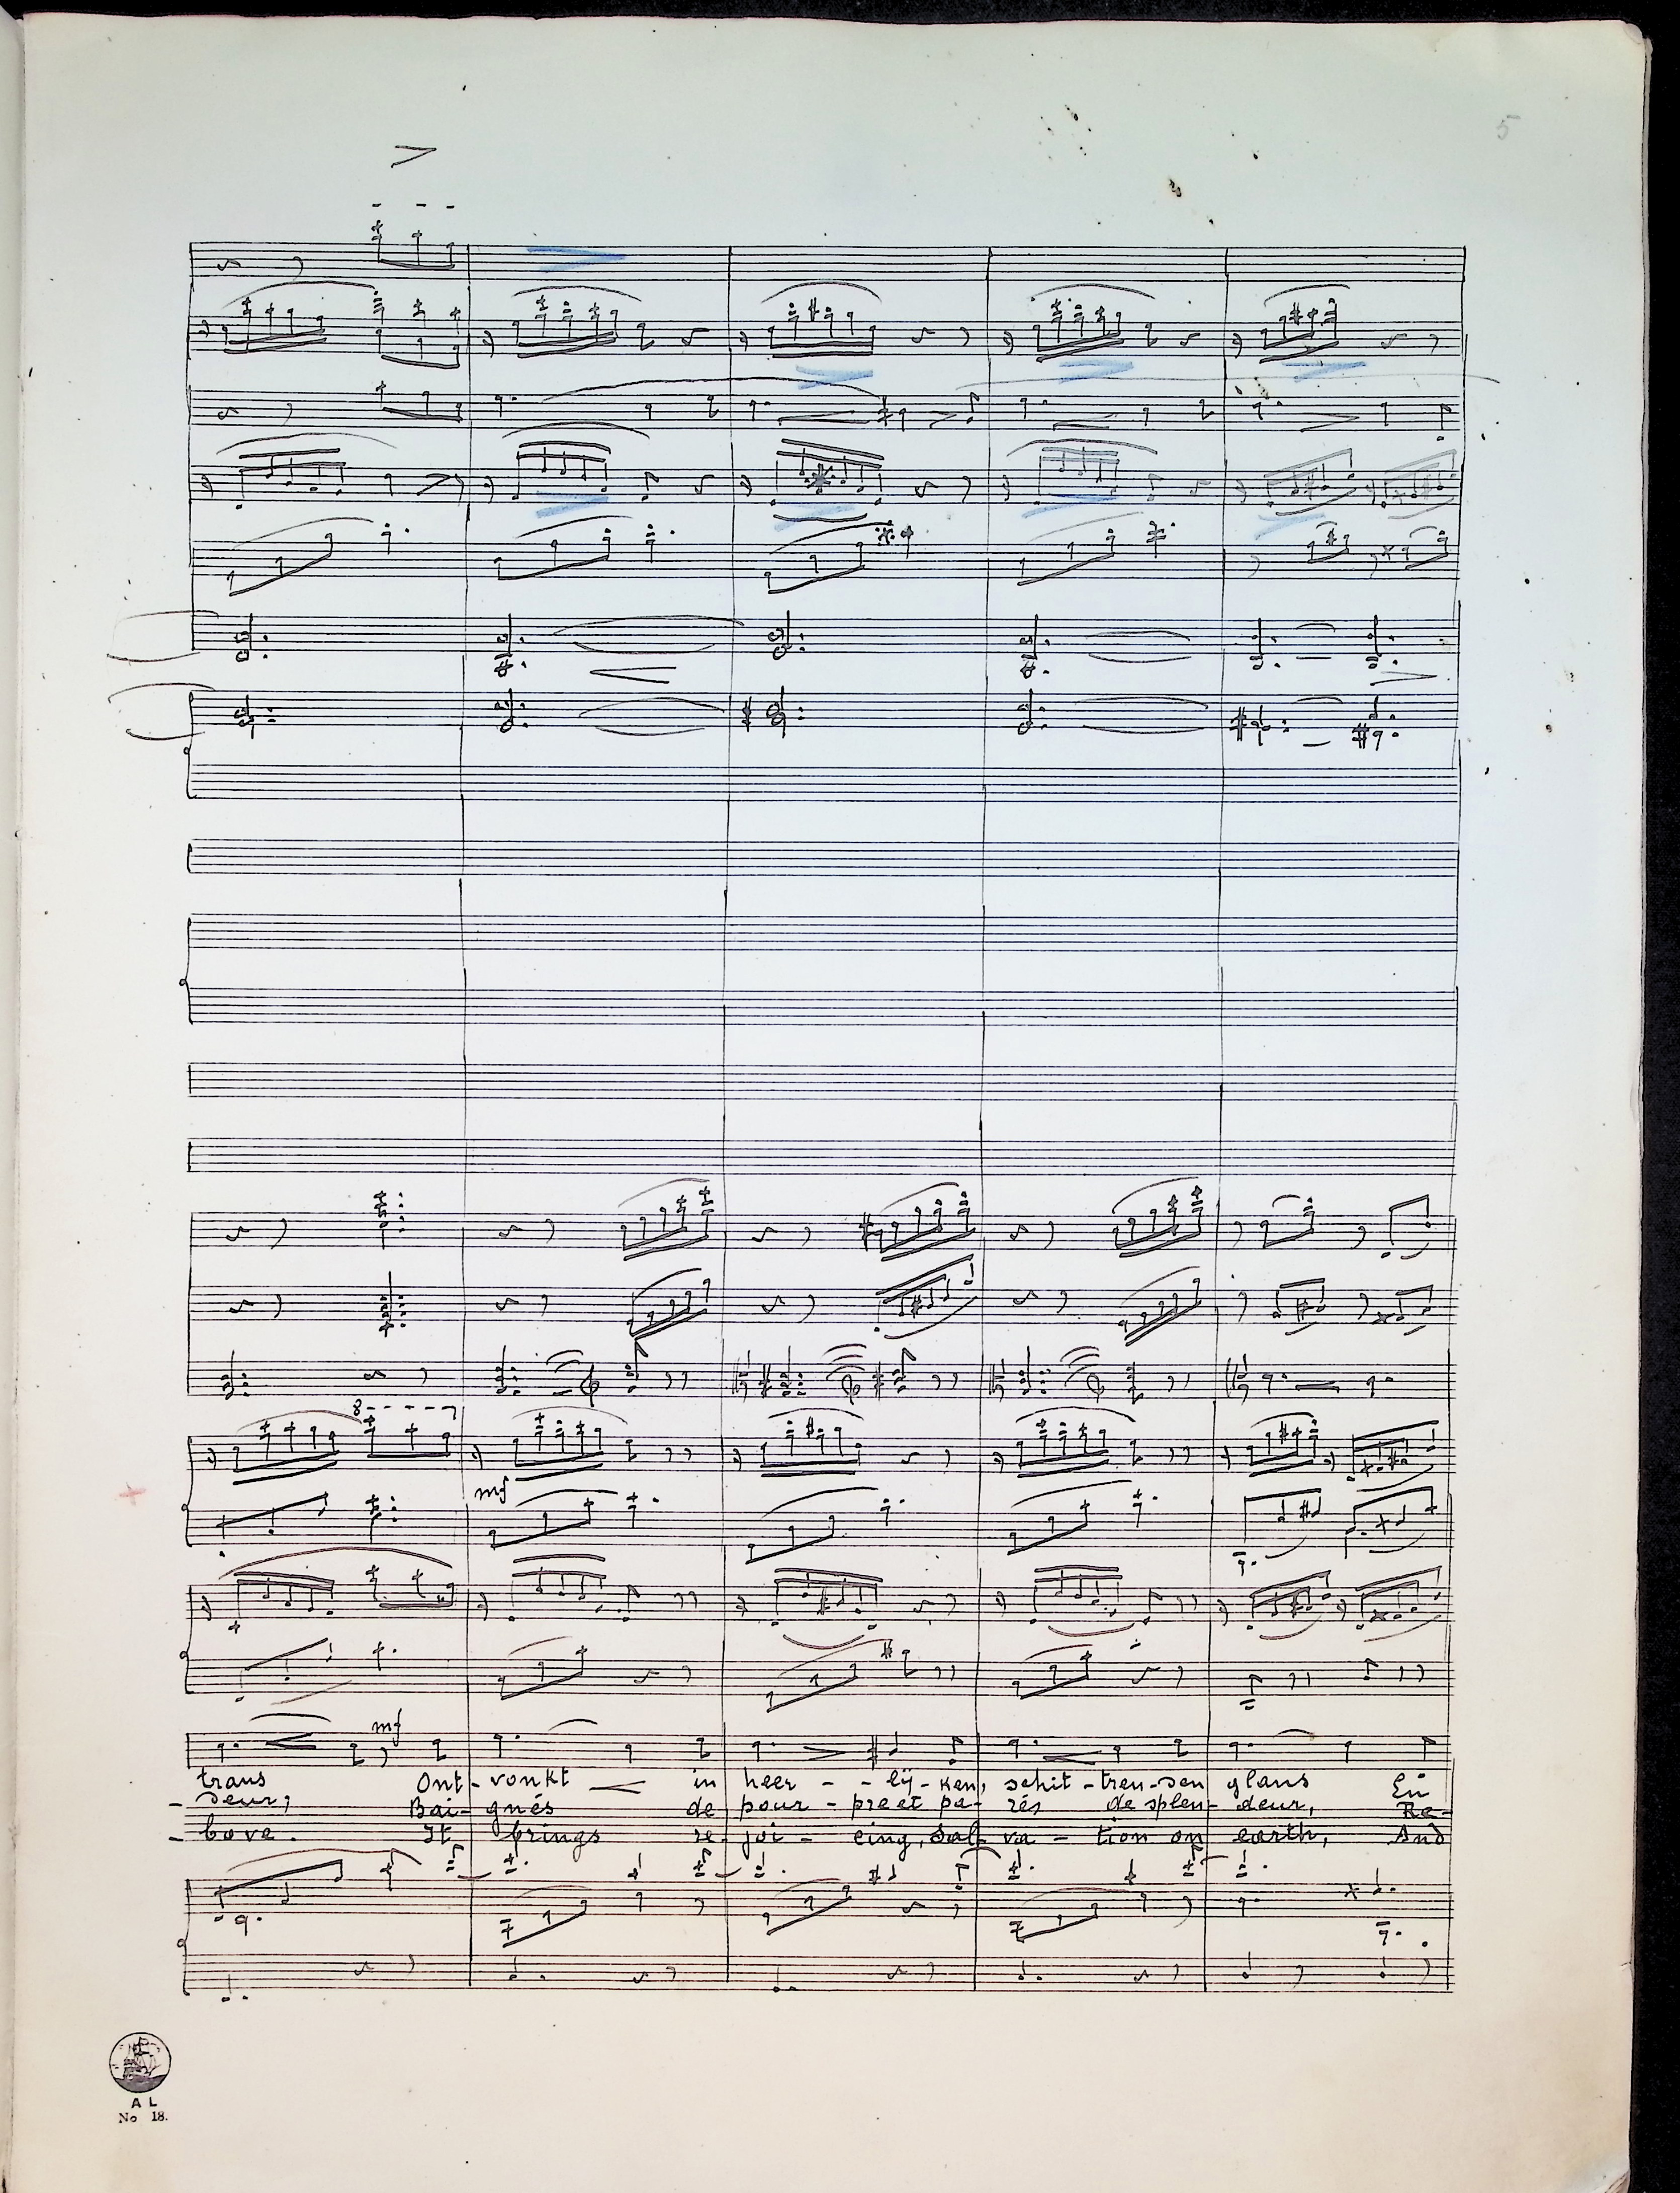 5
8
mf
mf
trans Ont - vonkt in heer - - lij - ken, schit - tren - den glans En
- deur; Bai - gnés de pour - pre et pa - rés de splen - deur, Re -
- bove. It brings re - joi - cing, Sal - va - tion on earth, And
A L
No 18.